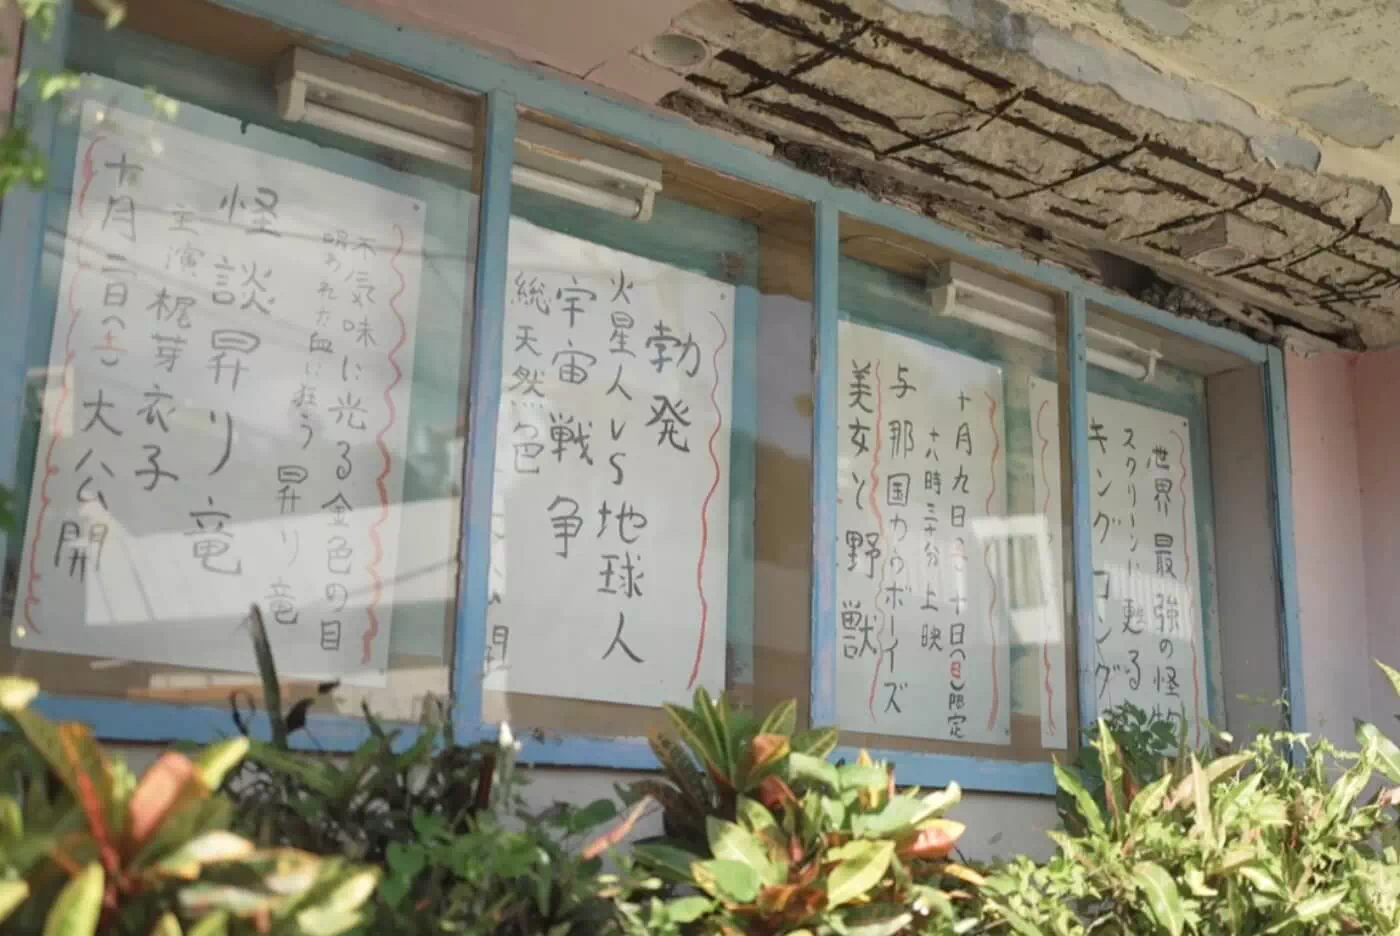 不気味に光る金色の目
呪われた血に狂う昇り竜
怪談昇り竜
主演梶芽衣子
十月二日(土)大公開
勃発
火星人VS地球人
宇宙戦争
総天然色
十月九日(土)十日(日)限定
十八時三十分上映
与那国カウボーイズ
美女と野獣
世界最強の怪物
スクリーンに甦る
キングコング